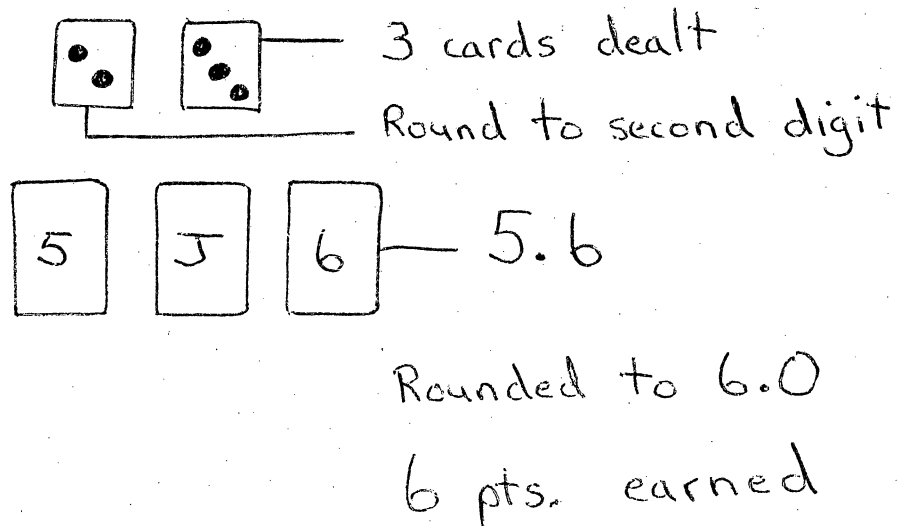 3 cards dealt
Round to second digit
5 J 6 5.6
Rounded to 6.0
6 pts. earned